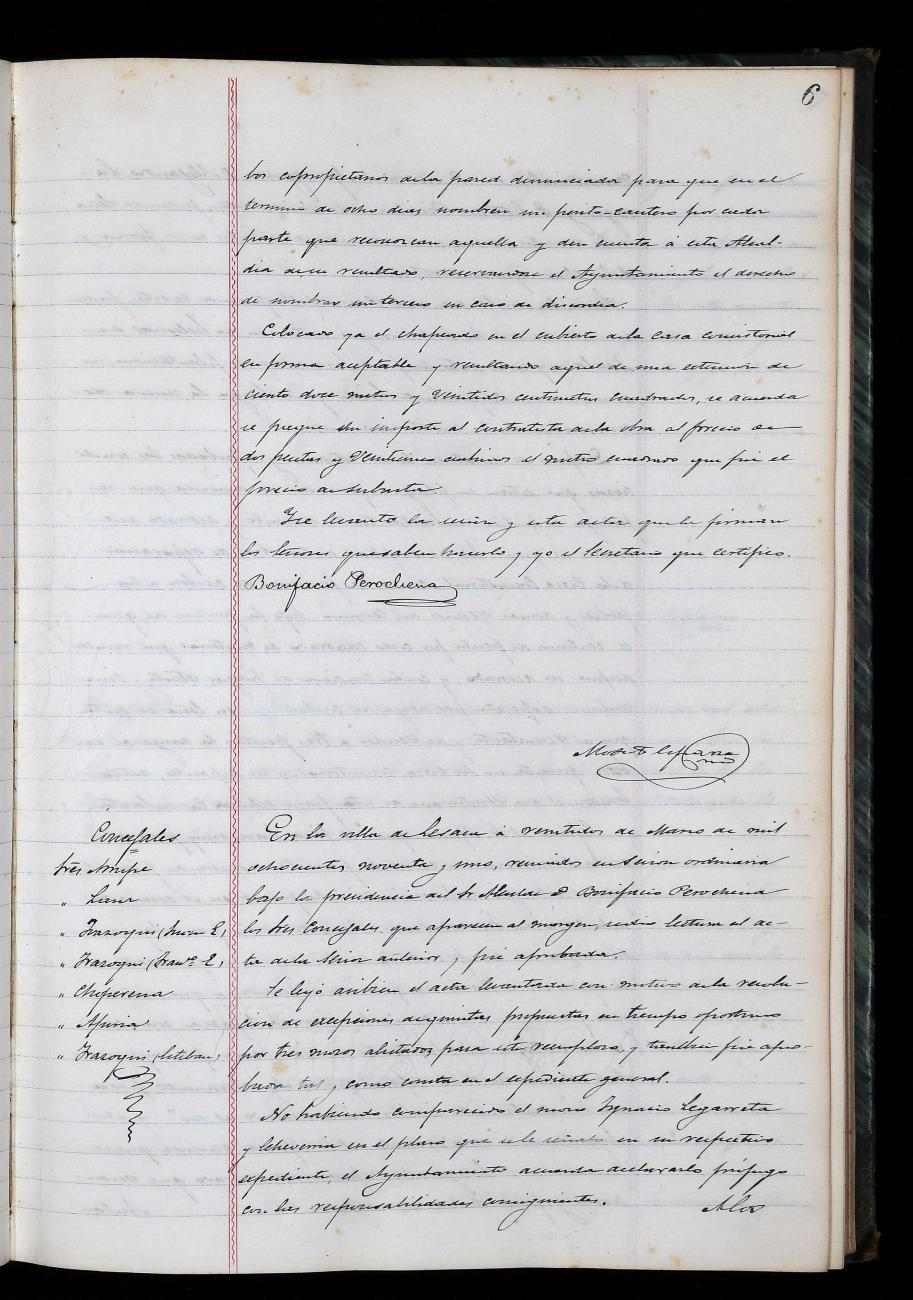 6
los copropietarios de la pared denunciada para que en el
termino de ocho dias nombren un perito-cantero por cada
parte que reconozcan aquella y den cuenta á esta Alcal-
dia de su resultado, reservandose el Ayuntamiento el derecho
de nombrar un tercero en caso de discordia.
Colocado ya el chapeado en el cubierto de la Casa Consistorial
en forma aceptable y resultando aquel de una estension de
ciento doce metros y veintidos centimetros cuadrados, se acuerda
se pague su importe al contratista de la obra al precio de
dos pesetas y veinticinco centimos el metro cuadrado que fué el
precio de subasta.
Y se levantó la sesion y esta acta que la firman
los Señores que saben hacerlo y yo el Secretario que certifico.
Bonifacio Perochena
Concejales
Sres
"
" Irazoqui
" Irazoqui
" Chiperena
" Apuria
" Irazoqui (Esteban)
En la villa de Lesaca á veintidos de Marzo de mil
ochocientos noventa y uno, reunidos en sesion ordinaria
bajo la presidencia del Sr Alcalde D Bonifacio Perochena
los Sres Concejales que aparecen al margen, se dió lectura el ac-
ta de la sesion anterior y fué aprobada.
Se leyó asi bien el acta levantada con motivo de la resolu-
cion de excepciones de quintas propuestas en tiempo oportuno
por tres mozos alistados para este reemplazo, y tambien fué apro-
bada tal y como consta en el espediente general.
No habiendo comparecido el mozo Ygnacio Legarreta
y Echeverria en el plazo que se le señaló en su respectivo
espediente, el Ayuntamiento acuerda declararlo prófugo
con las responsabilidades consiguientes.
A los